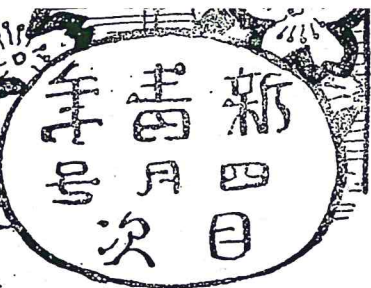 新青年
四月号
目次